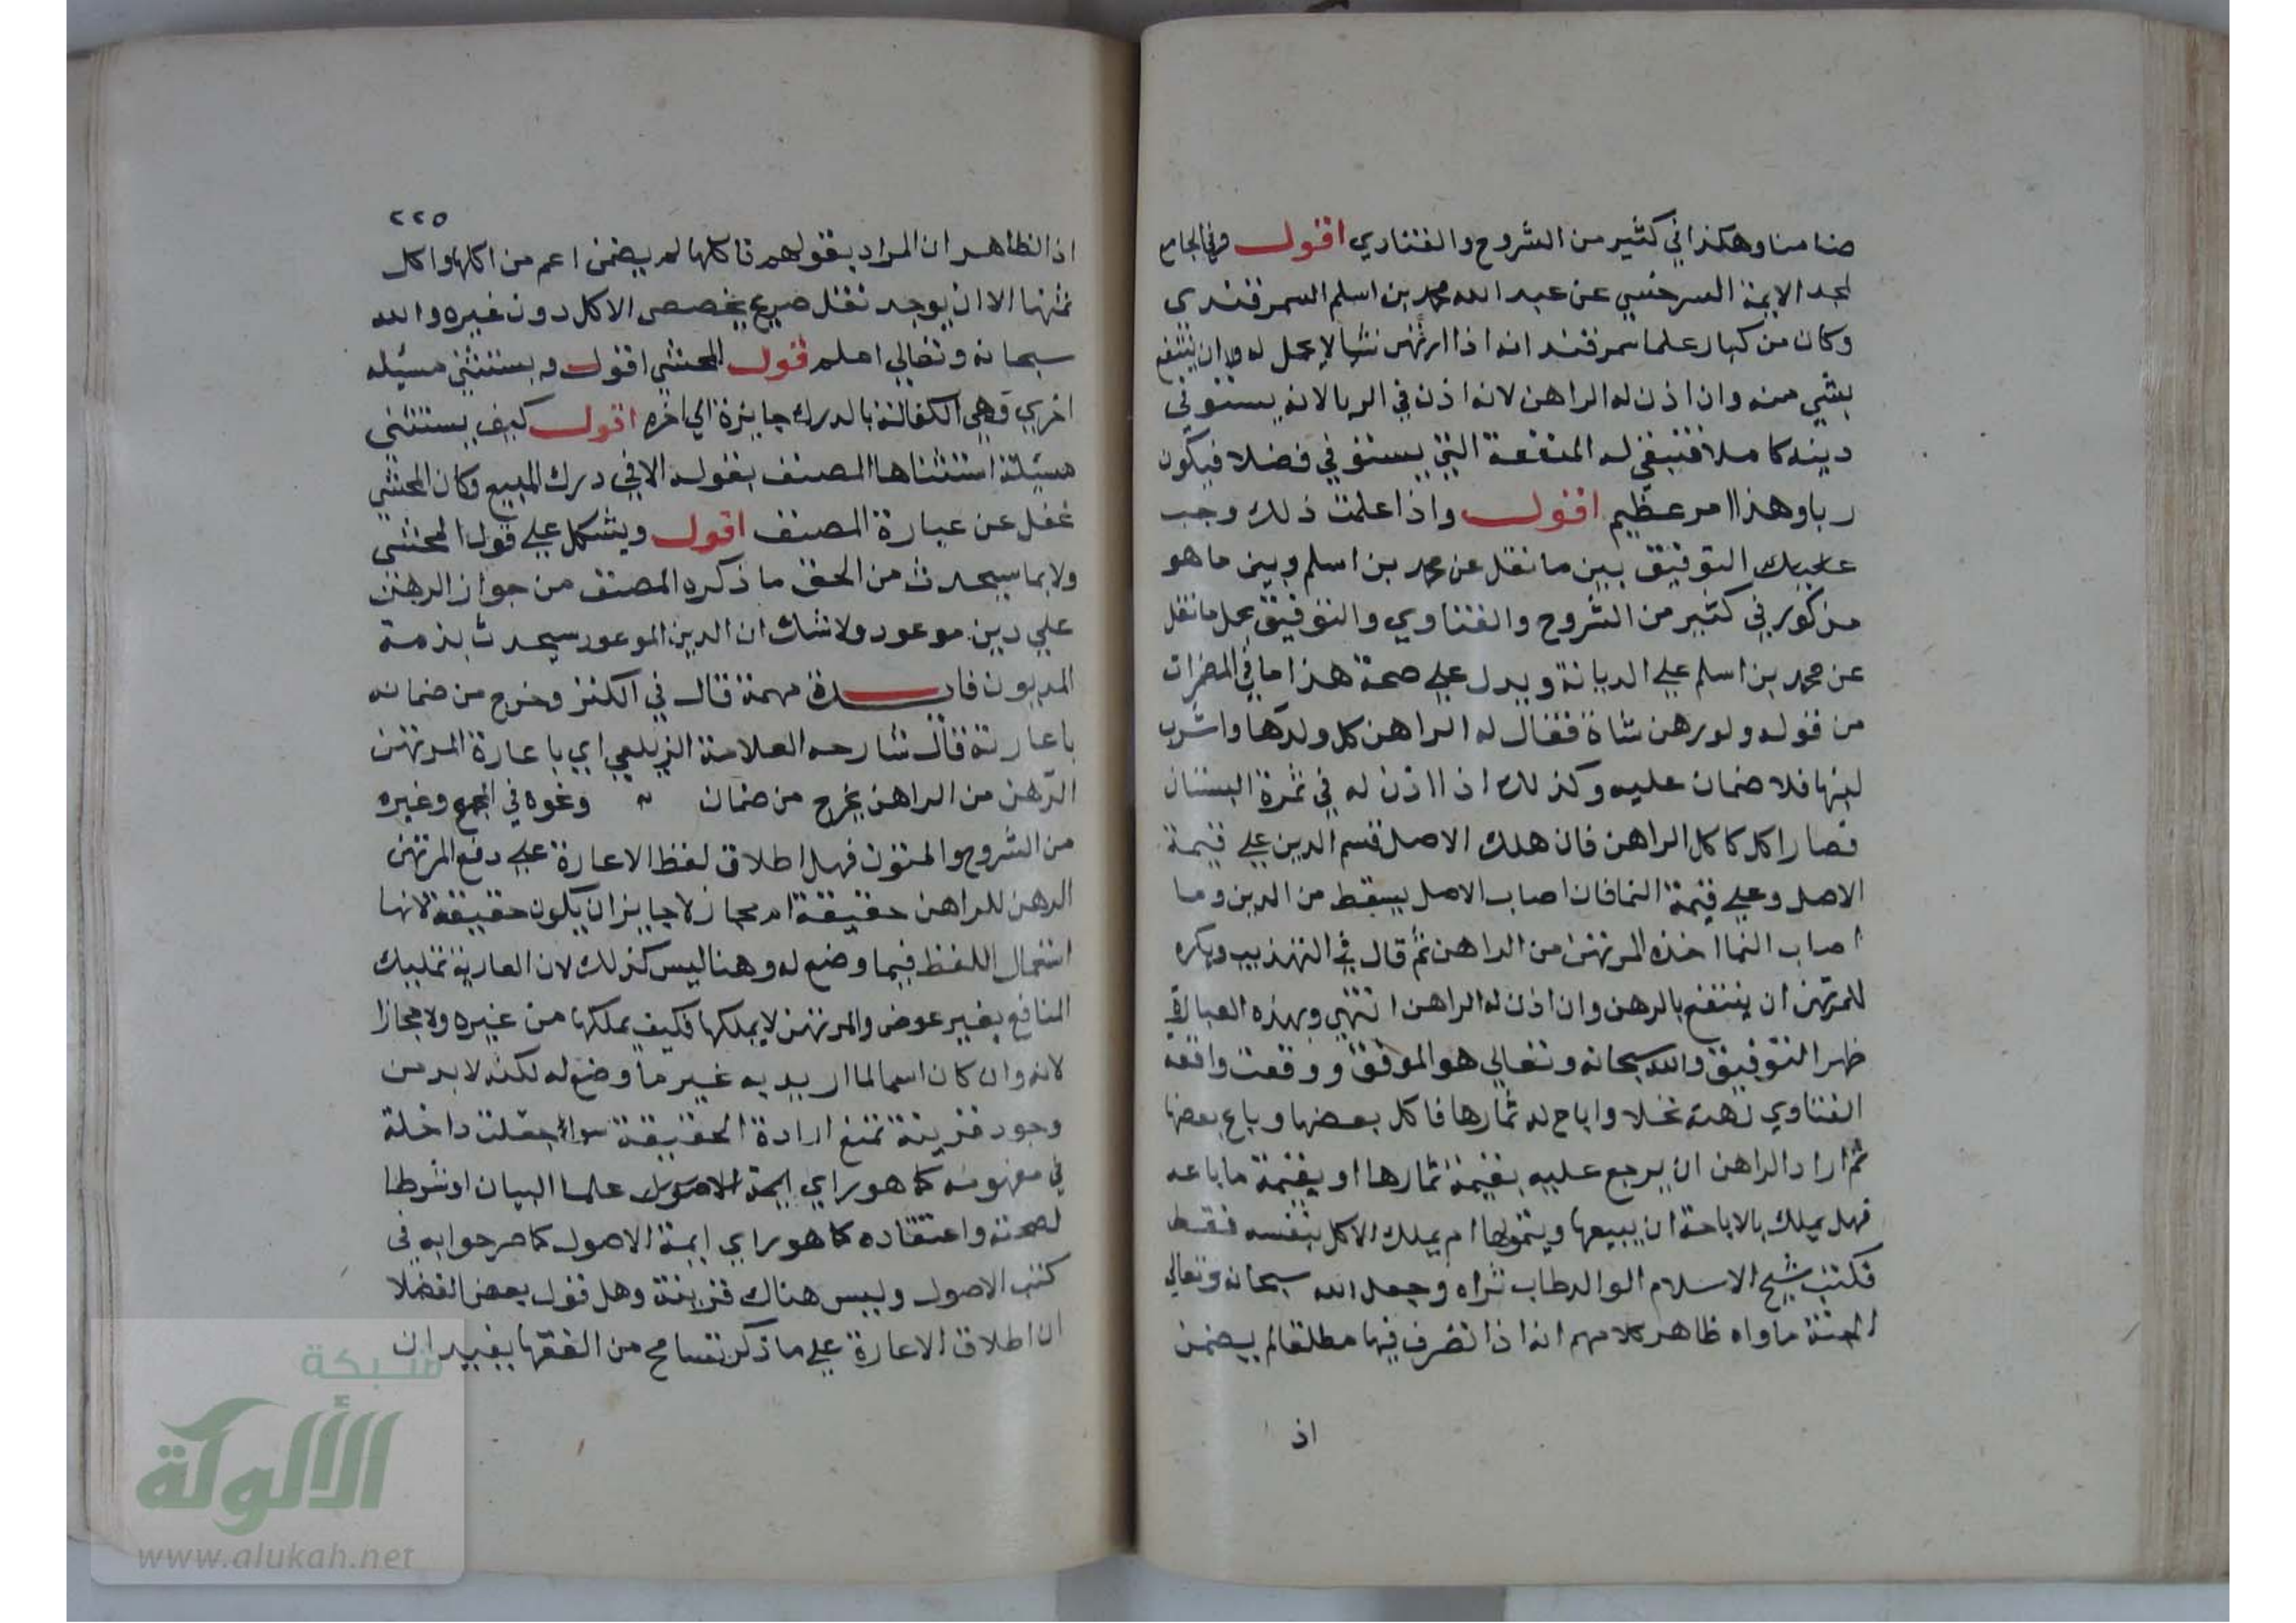 ضامنا وهكذا في كثير من الشروح والفتاوي اقول وفي الجامع
لمجد الايمة السرخسي عن عبد الله محمد بن اسلم السمرقندى
وكان من كبار علما سمرقند انه اذا ارتهن شيا لا يحل له ان ينتفع
بشي منه وان اذن له الراهن لانه اذن في الربا لانه يستوفي
دينه كاملا فتبقي له المنفعة التي يستوفي فضلا فيكون
ربا وهذا امر عظيم اقول واذا علمت ذلك وجب
عليك التوفيق بين ما نقل عن محمد بن اسلم وبين ما هو
مذكور في كثير من الشروح والفتاوي والتوفيق بحمل ما نقل
عن محمد بن اسلم علي الديانة ويدل علي صحة هذا ما في المضمرات
من قوله ولو رهن شاة فقال له الراهن كل ولدها واشرب
لبنها فلا ضمان عليه وكذلك اذا اذن له في ثمرة البستان
فصار اكله كاكل الراهن فان هلك الاصل قسم الدين علي قيمة
الاصل وعلي قيمة النما فان اصاب الاصل يسقط من الدين وما
اصاب النما اخذه المرتهن من الراهن ثم قال في التهذيب ويكره
للمرتهن ان ينتفع بالرهن وان اذن له الراهن انتهي وبهذه العبارة
ظهر التوفيق والله سبحانه وتعالي هو الموفق ووقعت واقعة
الفتاوي رهنه نخلا واباح له ثمارها فاكل بعضها وباع بعضها
ثم اراد الراهن ان يرجع عليه بقيمة ثمارها او بقيمة ما باعه
فهل يملك بالاباحة ان يبيعها ويتمولها ام يملك الاكل بنفسه فقط
فكتب شيخ الاسلام الوالد طاب ثراه وجعل الله سبحانه وتعالي
الجنة ماواه ظاهر كلامهم انه اذا تصرف فيها مطلقا لم يضمن
اذ
٢٢٥
اذ الظاهر ان المراد بقولهم فاكلها لم يضمن اعم من اكلها واكل
ثمنها الا ان يوجد نقل صريح يخصص الاكل دون غيره والله
سبحانه وتعالي اعلم قول المحشي اقول ويستثني مسيله
اخري وهي الكفالة بالدرك جايزة الي اخره اقول كيف يستثني
مسيلة استثناها المصنف بقوله الا في درك المبيع وكان المحشي
غفل عن عبارة المصنف اقول ويشكل علي قول المحشي
ولا بما سيحدث من الحق ما ذكره المصنف من جواز الرهن
علي دين موعود ولا شك ان الدين الموعود سيحدث بذمة
المديون فايدة مهمة قال في الكنز وخرج من ضمانه
باعارته قال شارحه العلامة الزيلعي اي باعارة المرتهن
الرهن من الراهن يخرج من ضمانه ونحوه في المجمع وغيره
من الشروح والمتون فهل اطلاق لفظ الاعارة علي دفع المرتهن
الرهن للراهن حقيقة ام مجاز لا جايز ان يكون حقيقة لانها
استعمال اللفظ فيما وضع له وهنا ليس كذلك لان العارية تمليك
المنافع بغير عوض والمرتهن لا يملكها فكيف يملكها من غيره ولا مجازا
لانه وان كان اسما لما اريد به غير ما وضع له لكنه لا بد من
وجود قرينة تمنع ارادة الحقيقة سواء جعلت داخلة
في مفهومه كما هو راي علما البيان او شرطا
لصحته واعتقاده كما هو راي ايمة الاصول كما صرحوا به في
كتب الاصول وليس هناك قرينة وهل قول بعض الفضلا
ان اطلاق الاعارة علي ما ذكر تسامح من الفقها يفيد ان
شبكة
الألوكة
www.alukah.net